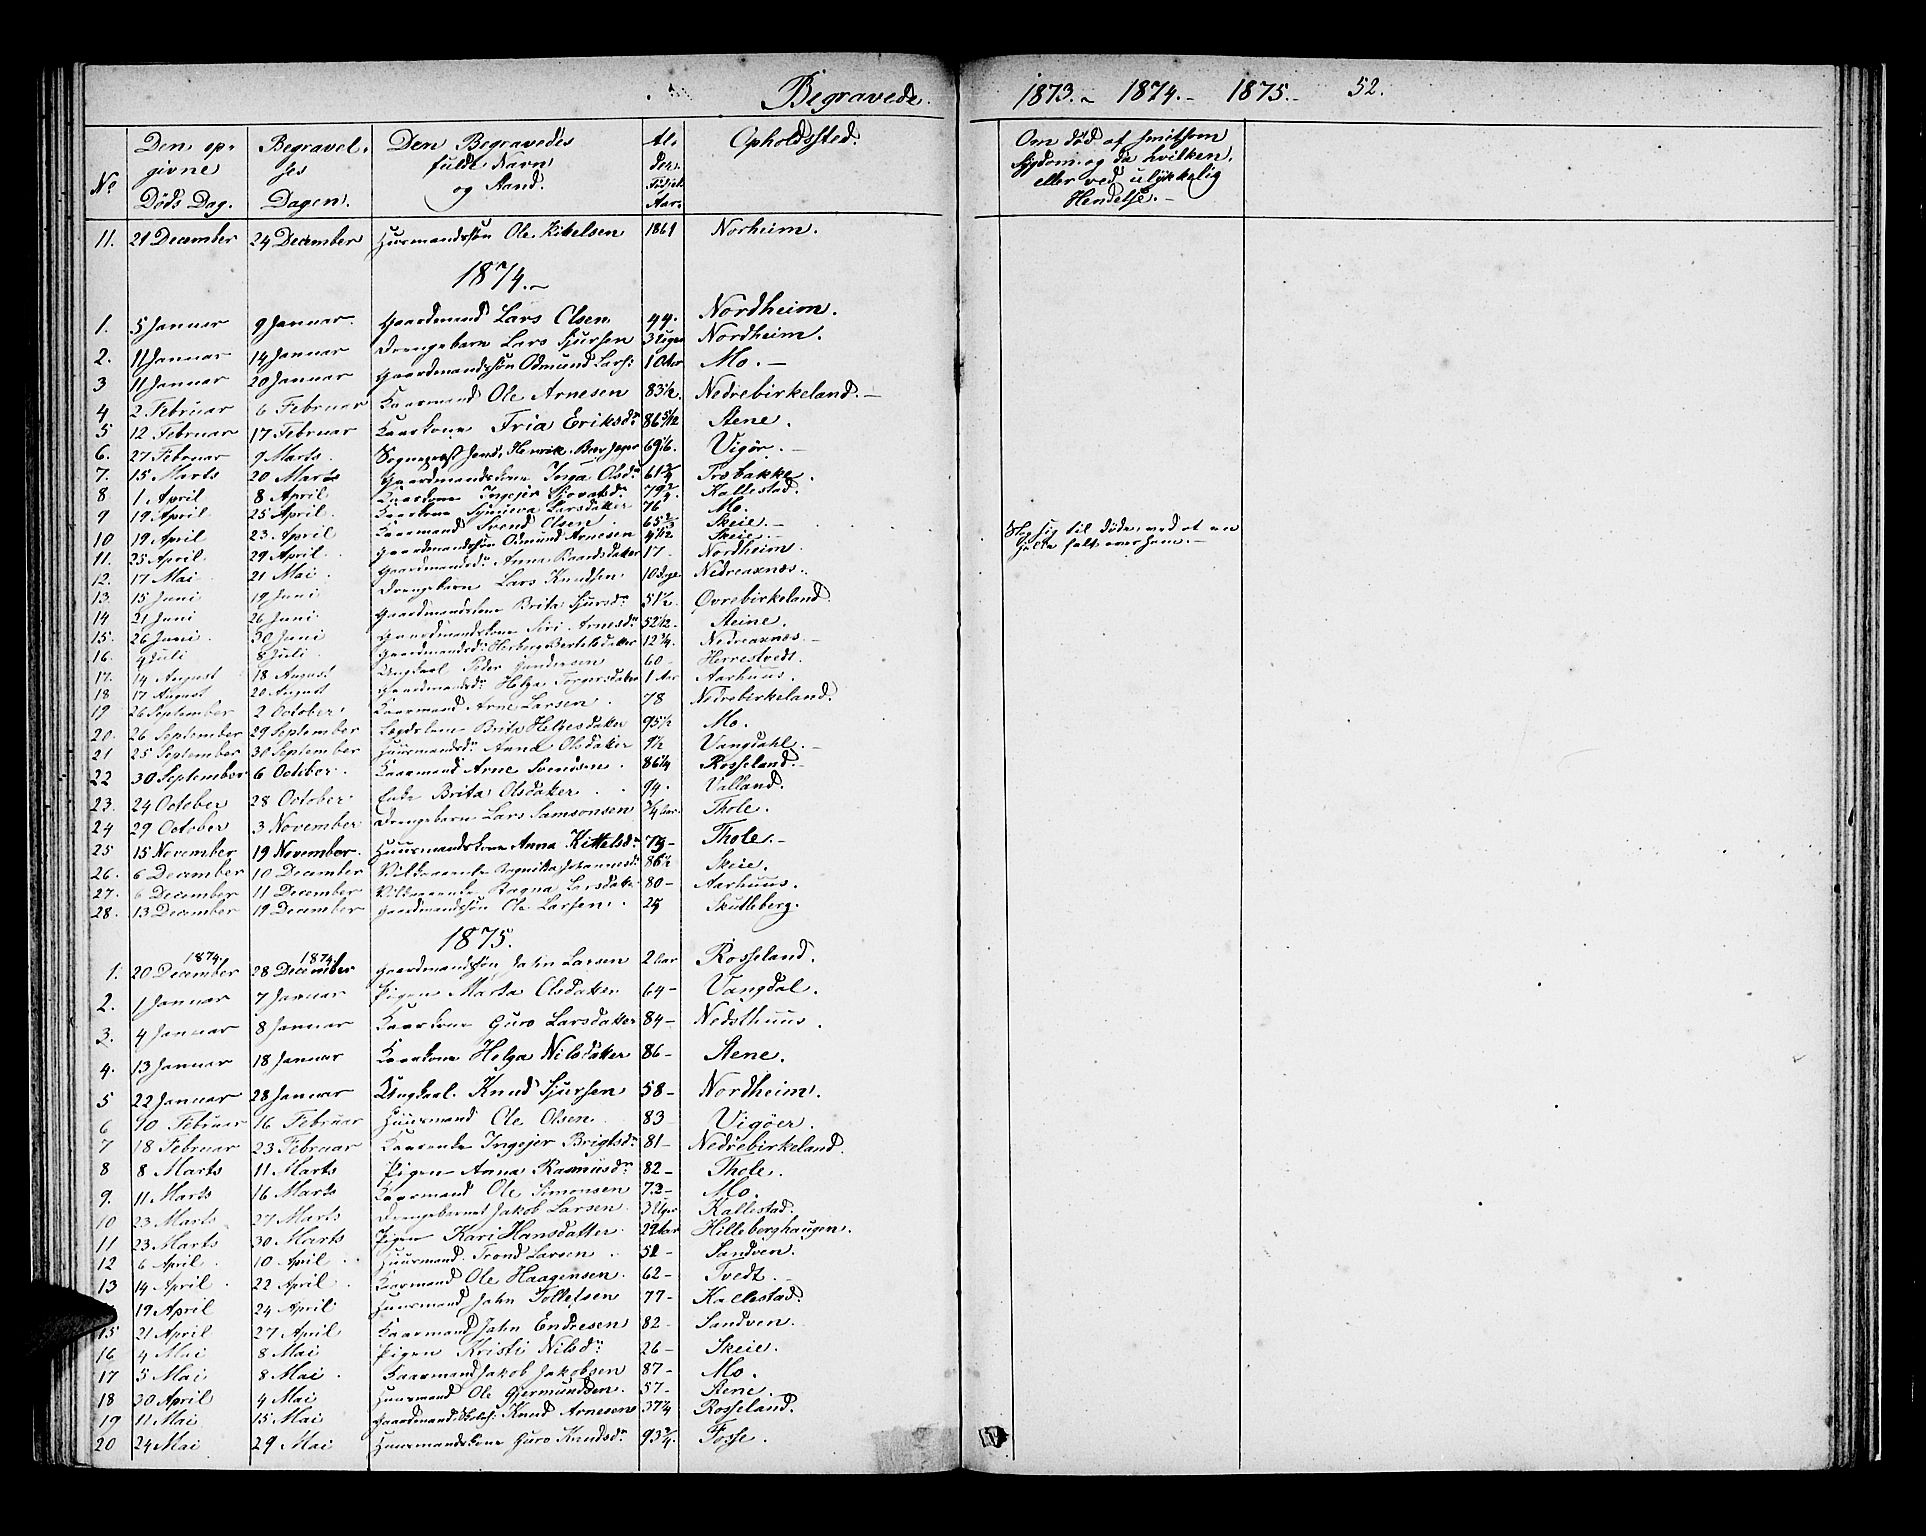 Begravede. 1873.- 1874.- 1875.- 52.
No Den opgivne Døds Dag. Begravelses Dagen. Den Begravedes fulde Navn og Stand. Alder Aar. Opholdssted. Om død af smitsom Sygdom og da hvilken, eller ved ulykkelig Hendelse.-
11. 21 December 24 December Huusmandssøn Ole Kittelsen 1861 Norheim.
1874.-
1. 5 Januar 9 Januar. Gaardmand Lars Olsen 44. Nordheim.
2. 11 Januar 14 Januar Drengebarn Lars Sjursen 3 Uger Nordheim.
3 11 Januar 20 Januar Gaardmandssøn Odmund Lars: 10 Aar Mo.-
4 2 Februar 6 Februar Kaarmand Ole Arnesen 83½. Nedrebirkeland.-
5 12 Februar 17 Februar Kaarkone Tria Eriksdr 86 5/12 Stene.
6. 27 Februar 9 Marts. Sogneprest Jens Henrik Jæger 69 1/6. Vigør.-
7. 15 Marts 20 Marts Gaardmandskone Inga Olsdr 61 Træbakke.
8 1. April 8 April Kaarkone Ingejer 79 Kallestad.
9 19 April 25 April. Kaarkone Synneva Larsdatter 76 Mo.
10 19 April 23 April Kaarmand Svend Olsen. 65 Skeie.-
11. 25 April 29 April. Gaardmandssøn Odmund Arnesen Skeie.- Slog sig til døde, ved at en falt over ham.-
12. 17 Mai 21 Mai. Gaardmandsdr Anna Baardsdatter 17- Nordheim.
13. 15 Juni 19 Juni Drengebarn Lars Knudsen 10 Dage Nedreaxnæs.
14 21 Juni 26 Juni Gaardmandskone Brita Sjursdr 51½. Øvrebirkeland.
15. 26 Juni. 30 Juni Gaardmandskone Siri Arnesdr 52½. Steine.
16. 4 Juli 8 Juli. Gaardmandsdr Herborg Bertelsdatter 12¾. Nedreaxnæs.-
17. 14 August 18 August Ungkarl Peder Gundersen 60- Herrestvedt.
18 17 August 20 August Gaardmandsdr Helga Torgersdatter 1 Aar Aarhuus.
19 26 September 2 October. Kaarmand Arne Larsen. 78 Nedrebirkeland.
20. 26 September 29 September Brita Helgesdatter 95½ Mo.
21 25 September 30 September Huusmandsdr Anna Olsdatter 9½ Vangdahl.-
22 30 September 6 October. Kaarmand Arne Svendsen. 86¼ Rosseland.-
23. 24 October 28 October Enke Brita Olsdatter. 94. Valland.
24 29 October 3 November Drengebarn Lars Samsonsen ¾ Aar. Thole.
25 15 November 19 November. Huusmandskone Anna Kittelsdr 75- Thole.-
26. 6 December 10 December Johannesdr 86½ Skeie.
27. 6 December 11 December Ragna Larsdatter 80- Aarhuus.
28. 13 December 19 December Gaardmandssøn Ole Larsen. 25 Skutleberg.
1875.
1. 20 December 1874 28 December 1874 Gaardmandssøn John Larsen 2 Aar Rosseland.
2. 1 Januar 7 Januar Pigen Marta Olsdatter 64- Vangdal.
3. 4 Januar 8 Januar Kaarkone Guro Larsdatter 84- Nedsthuus.
4. 13 Januar 18 Januar Kaarkone Helga Nilsdatter 86- Stene.
5 22 Januar 28 Januar Ungkarl. Knud Sjursen 58- Nordheim.
6 10 Februar 16 Februar Huusmand Ole Olsen. 83 Vigøer.
7 18 Februar 23 Februar Kaarenke Ingejer Brigtsdr 81- Nedrebirkeland.
8 8 Marts 11 Marts Pigen Anna Rasmusdr 82- Thole.
9. 11 Marts 16 Marts Kaarmand Ole Simonsen 73- Mo.
10 23 Marts 27 Marts Drengebarnet Jakob Larsen 3 Uger Kallestad.
11 23 Marts 30 Marts Pigen Kari Hansdatter 29 Aar Hilleberghaugen.
12 6 April. 10 April Huusmand. Trond Larsen 51- Sandven.
13 14 April. 22 April. Kaarmand Ole Haagensen. 62- Tvedt.-
19 April 24 April Huusmand John Tollefsen 77- Kallestad.
15 21 April 27 April Kaarmand John Endresen 82- Sandven.
16 4 Mai 8 Mai Pigen Kristi Nilsdr 26- Skeie.
17 5 Mai 8 Mai. Kaarmand Jakob Jakobsen 87- Mo.
18 30 April 4 Mai Huusmand Ole Gjermundsen. 57- Stene.
19 11 Mai 15 Mai Knud Arnesen 37¼ Rosseland.
20 24 Mai 29 Mai Huusmandskone Guro Knudsdr 93¾. Fosse.